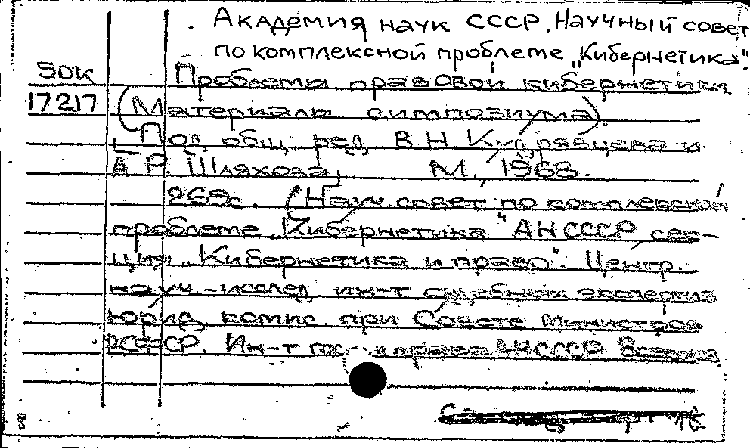 Академия наук СССР. Научный совет
по комплексной проблеме „Кибернетика".
SOK
Проблемы правовой кибернетики
17217
(Материалы симпозиума).
Под общ. ред. В.Н. Кудрявцева и
А.Р. Шляхова. М., 1968.
269с. (Науч. совет по комплексной
проблеме „Кибернетика" АН СССР сек-
ция „Кибернетика и право". Центр.
науч.-исслед. ин-т судебных экспертиз
Юрид. комис. при Совете Министров
РСФСР. Ин-т гос. и права АН СССР